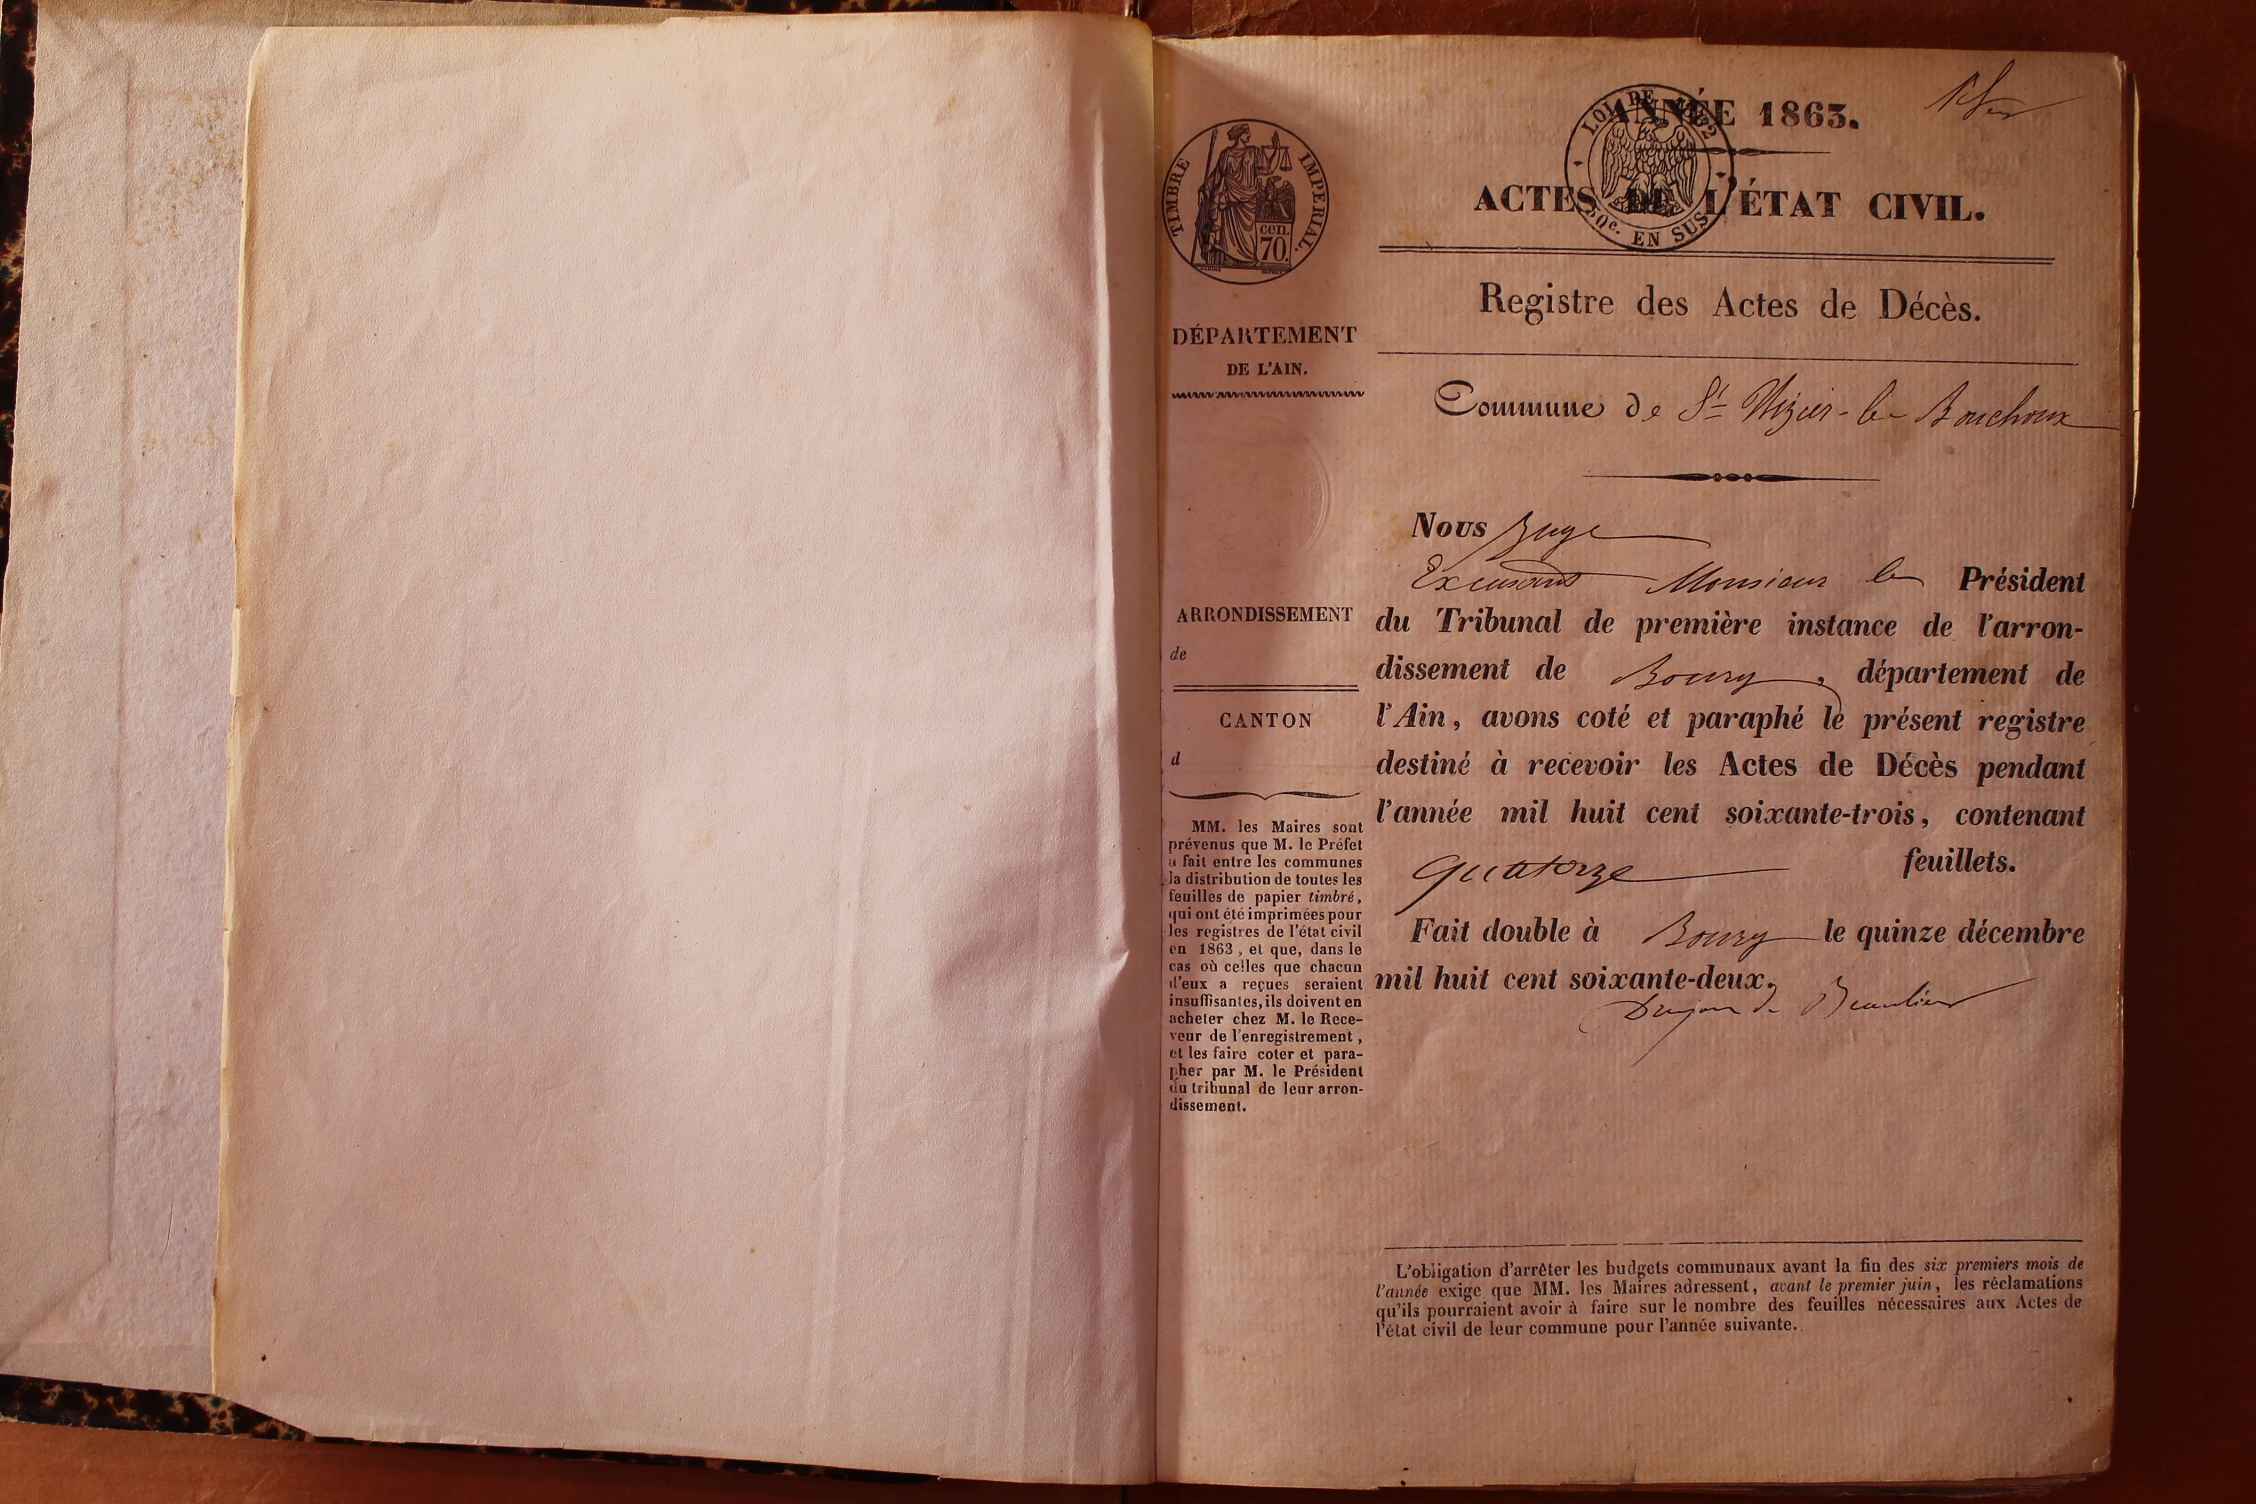 ANNÉE 1863.
LOI DE 1862
2/10e. EN SUS
ACTES DE L'ÉTAT CIVIL.
Registre des Actes de Décès.
Commune de St Nizier-le-Bouchoux
TIMBRE IMPERIAL.
cen.
70.
DÉPARTEMENT
DE L'AIN.
ARRONDISSEMENT
de
CANTON
d
MM. les Maires sont
prévenus que M. le Préfet
a fait entre les communes
la distribution de toutes les
feuilles de papier timbré,
qui ont été imprimées pour
les registres de l'état civil
en 1863, et que, dans le
cas où celles que chacun
d'eux a reçues seraient
insuffisantes, ils doivent en
acheter chez M. le Rece-
veur de l'enregistrement,
et les faire coter et para-
pher par M. le Président
du tribunal de leur arron-
dissement.
Nous Juge
Monsieur le Président
du Tribunal de première instance de l'arron-
dissement de Bourg, département de
l'Ain, avons coté et paraphé le présent registre
destiné à recevoir les Actes de Décès pendant
l'année mil huit cent soixante-trois, contenant
quatorze feuillets.
Fait double à Bourg le quinze décembre
mil huit cent soixante-deux.
Dujon de Beaulieu
L'obligation d'arrêter les budgets communaux avant la fin des six premiers mois de
l'année exige que MM. les Maires adressent, avant le premier juin, les réclamations
qu'ils pourraient avoir à faire sur le nombre des feuilles nécessaires aux Actes de
l'état civil de leur commune pour l'année suivante.